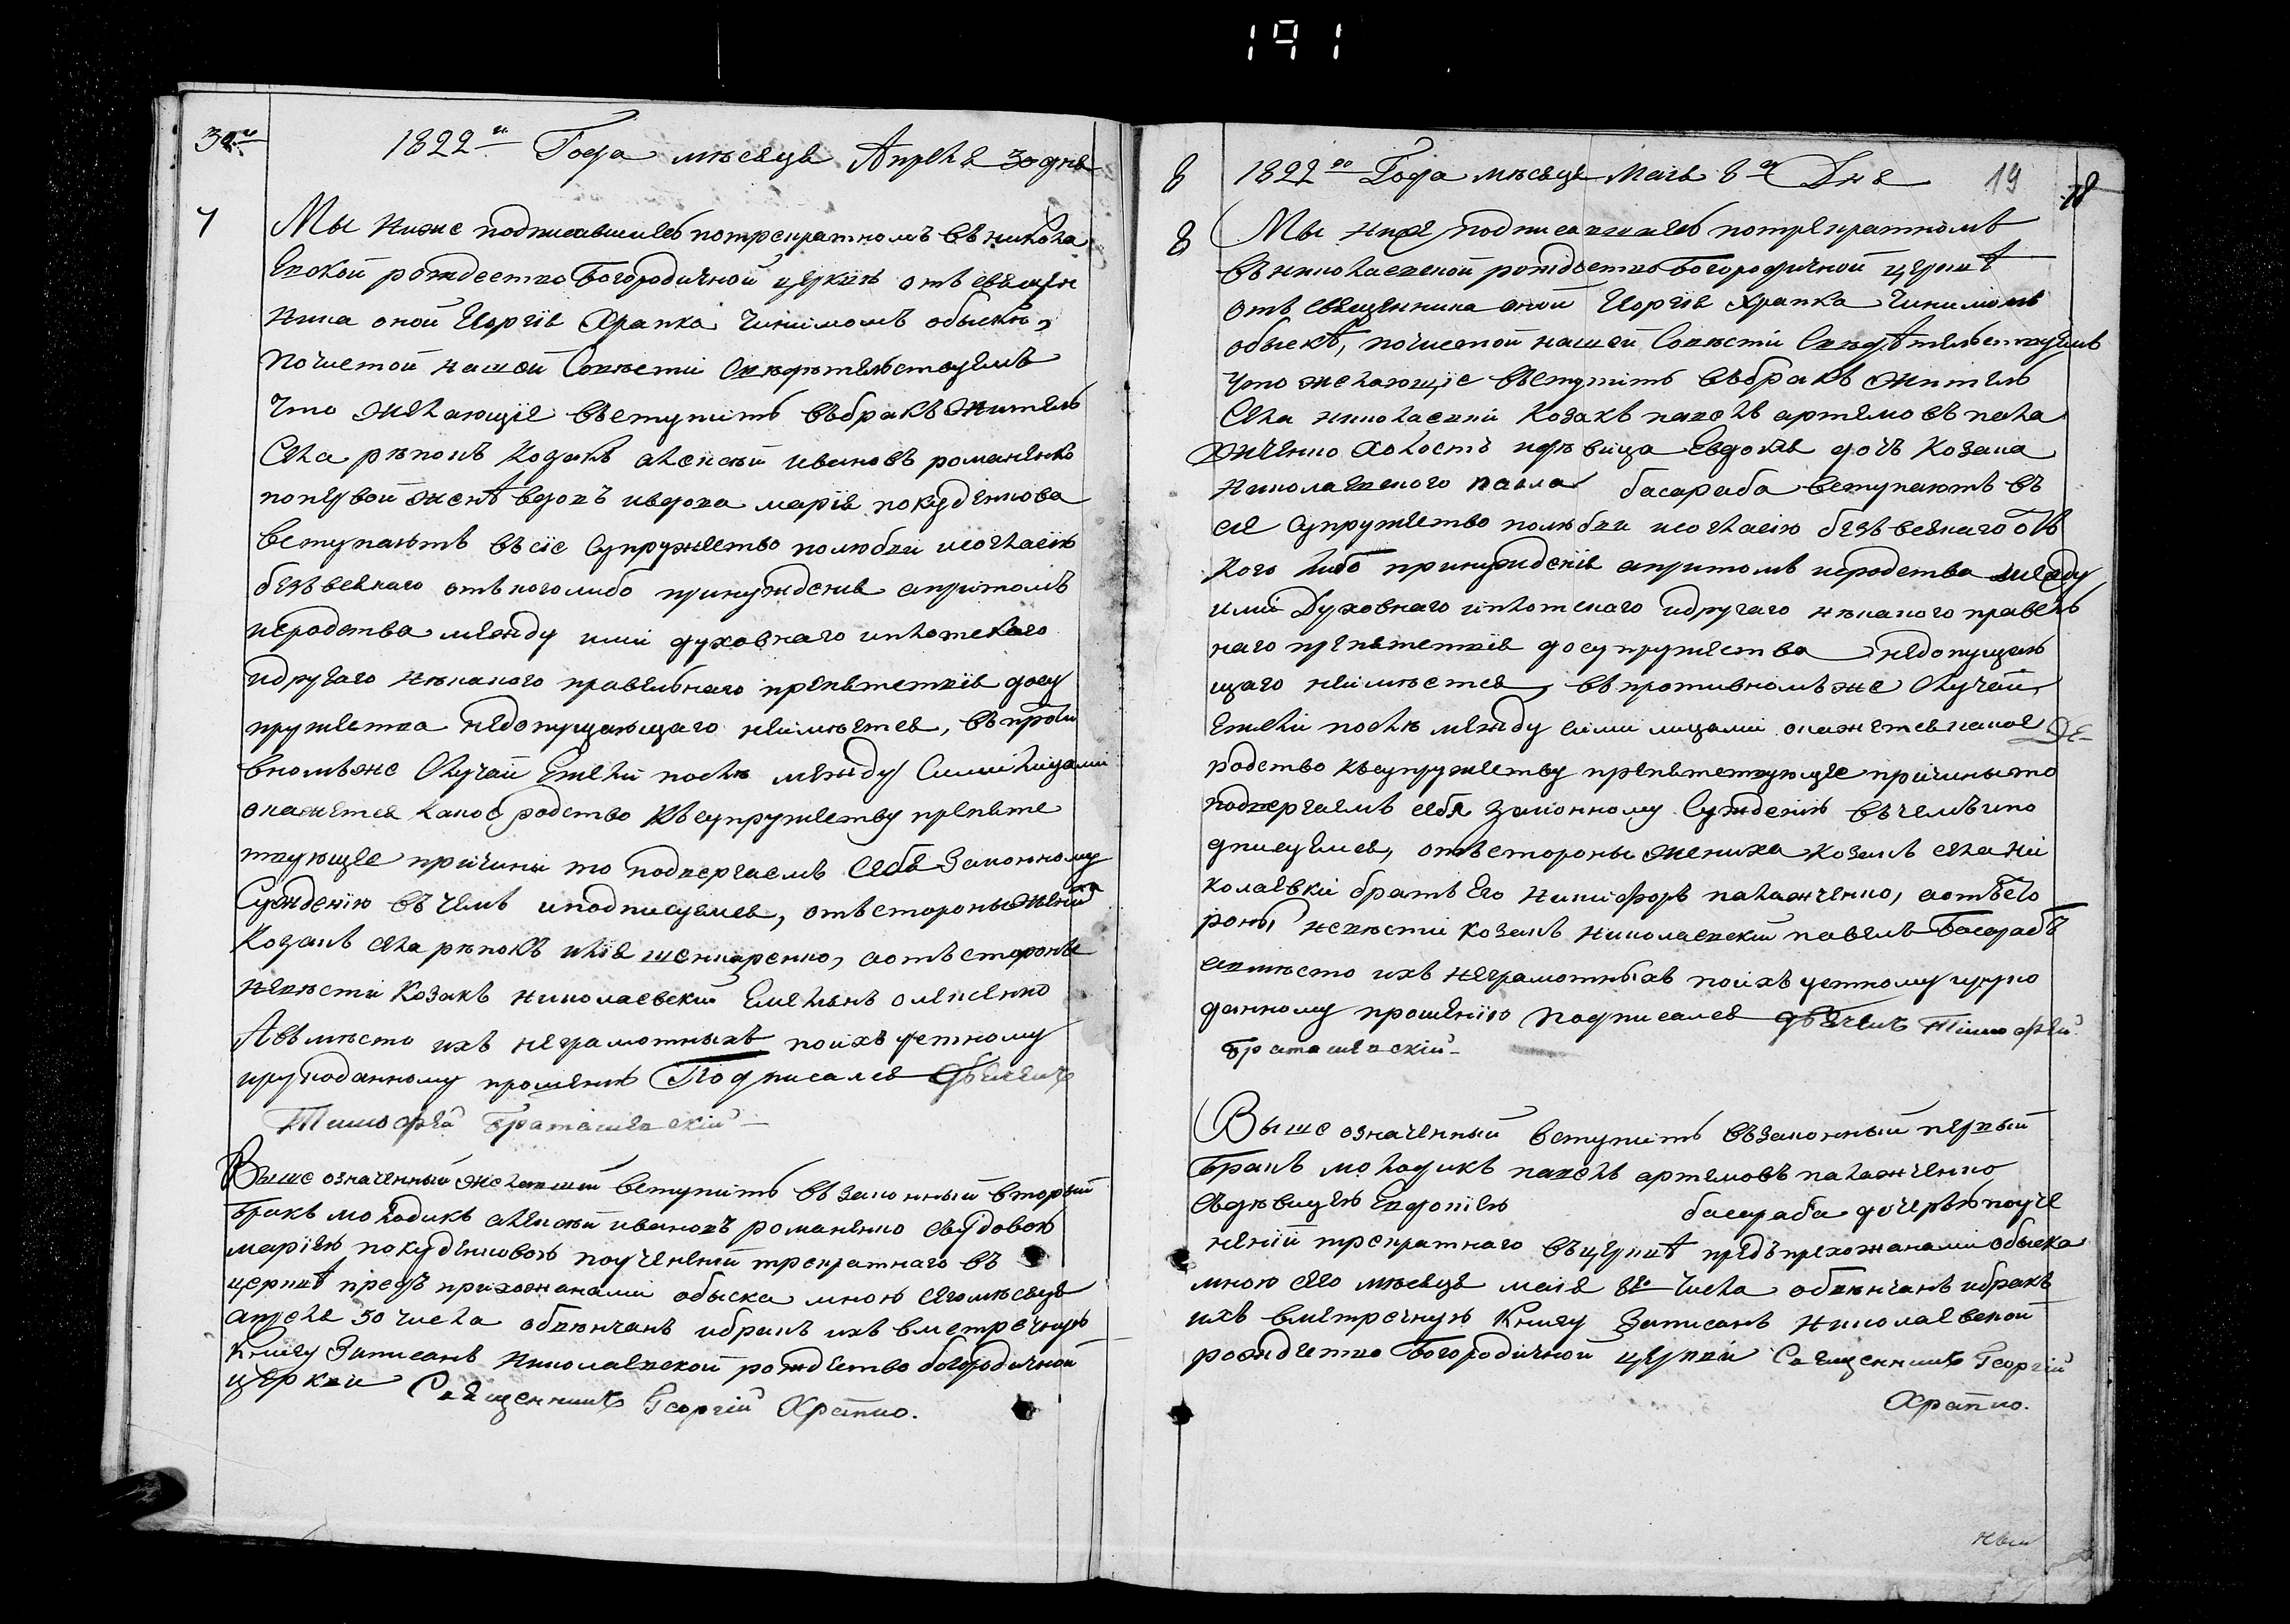 191
30го
1822го Года мѣсяца Апреля 30 дня
7
Мы ниже подписавшіесь потрекратномъ въ никола
евской рождество Богородичной церкви отъ священ
ника оной Георгія Храпка чинимомъ обыске,
по чистой нашей Совѣсти Свидѣтельствуемъ
что желающіе вступить въбракъ житель
Села рѣпокъ козакъ алексѣй ивановъ романенко
попервой женѣ вдовъ ивдова марія покуденкова
вступаютъ въсіе Супружество полюбви исогласію
безъвсякаго отъкоголибо принужденія апритомъ
иродства между ими духовнаго иплотскаго
идругаго нѣкакого правильнаго препятствія досу
пружества недопущающаго неимѣется, въпроти
вномъже Случаи Ежели послѣ между Симилицами
окажется какое родство къ супружеству препятс
твующее причины то подвергаемъ Себя Законному
Сужденію въ чемъ иподписуемся, отъстороны жениха
Козакъ села рѣпокъ илія шенкаренко, аотъстороны
невѣсти Козакъ николаевскій Емельянъ олексенко
Авъмѣсто ихъ неграмотныхъ поихъ устному
ирукоданному прошенію Подписался дьячекъ
Тимофей Браташевскій
Выше означенный желавшій вступить въ законный вторый
бракъ молодикъ алексѣй ивановъ романенко свдовою
маріею покуденковою поучененіи трекратнаго въ
церквѣ предъ прихожанами обыска мною сегомѣсяца
апреля 30 числа обвѣнчанъ ибракъ ихъ вметречную
Книгу Записанъ Николаевской рождество богородичной
церкви Священникъ Георгій Храпко.
8
1822го Года мѣсяца Маія 8го Дня
19
8
Мы ниже подписавшіесь потрекратномъ
въ николаевской рождество Богородичной церквѣ
отъ священника оной Георгія Храпка чинимомъ
обыскѣ, почистой нашей Совѣсти Свидѣтельствуемъ
что желающіе вступить въбракъ житель
Села николаевки Козакъ павелъ артемовъ пала
женко холостъ идѣвица Евдокія дочь Козака
николаевского павла басараба вступаютъ въ
сіе супружество полюбви исогласію безъ всякаго отъ
кого либо принужденія апритомъ иродства между
ими Духовнаго иплотскаго идругаго нѣкакого правель
наго препятствія досупружества недопущаю
щаго неимѣется, въпротивномъ же Случаи,
Ежели послѣ между сими лицами окажется какое
родство къ супружеству препятствующее причины то
подвергаемъ себя законному Сужденію въчемъ ипо
дписуемся, отъстороны жениха козакъ села ни
колаевки братъ Его никифоръ палаженко, аотъсто
роны невѣсти козакъ николаевскій павелъ Басарабъ
авмѣсто ихъ неграмотныхъ поихъ устному ируко
данному прошенію подписался дьячекъ Тимофей
Браташевскій
Выше означенный вступить въ законный первый
бракъ молодикъ павелъ артемовъ палаженко
съдѣвицею Евдокіею басараба дочерью поуче
неніи трекратнаго въцерквѣ предъ прихожанами обыска
мною сего мѣсяца маія 8го числа обвѣнчанъ ибракъ
ихъ вметречную Книгу Записанъ Николаевской
рождество Богородичной церкви Священникъ Георгій
Храпко.